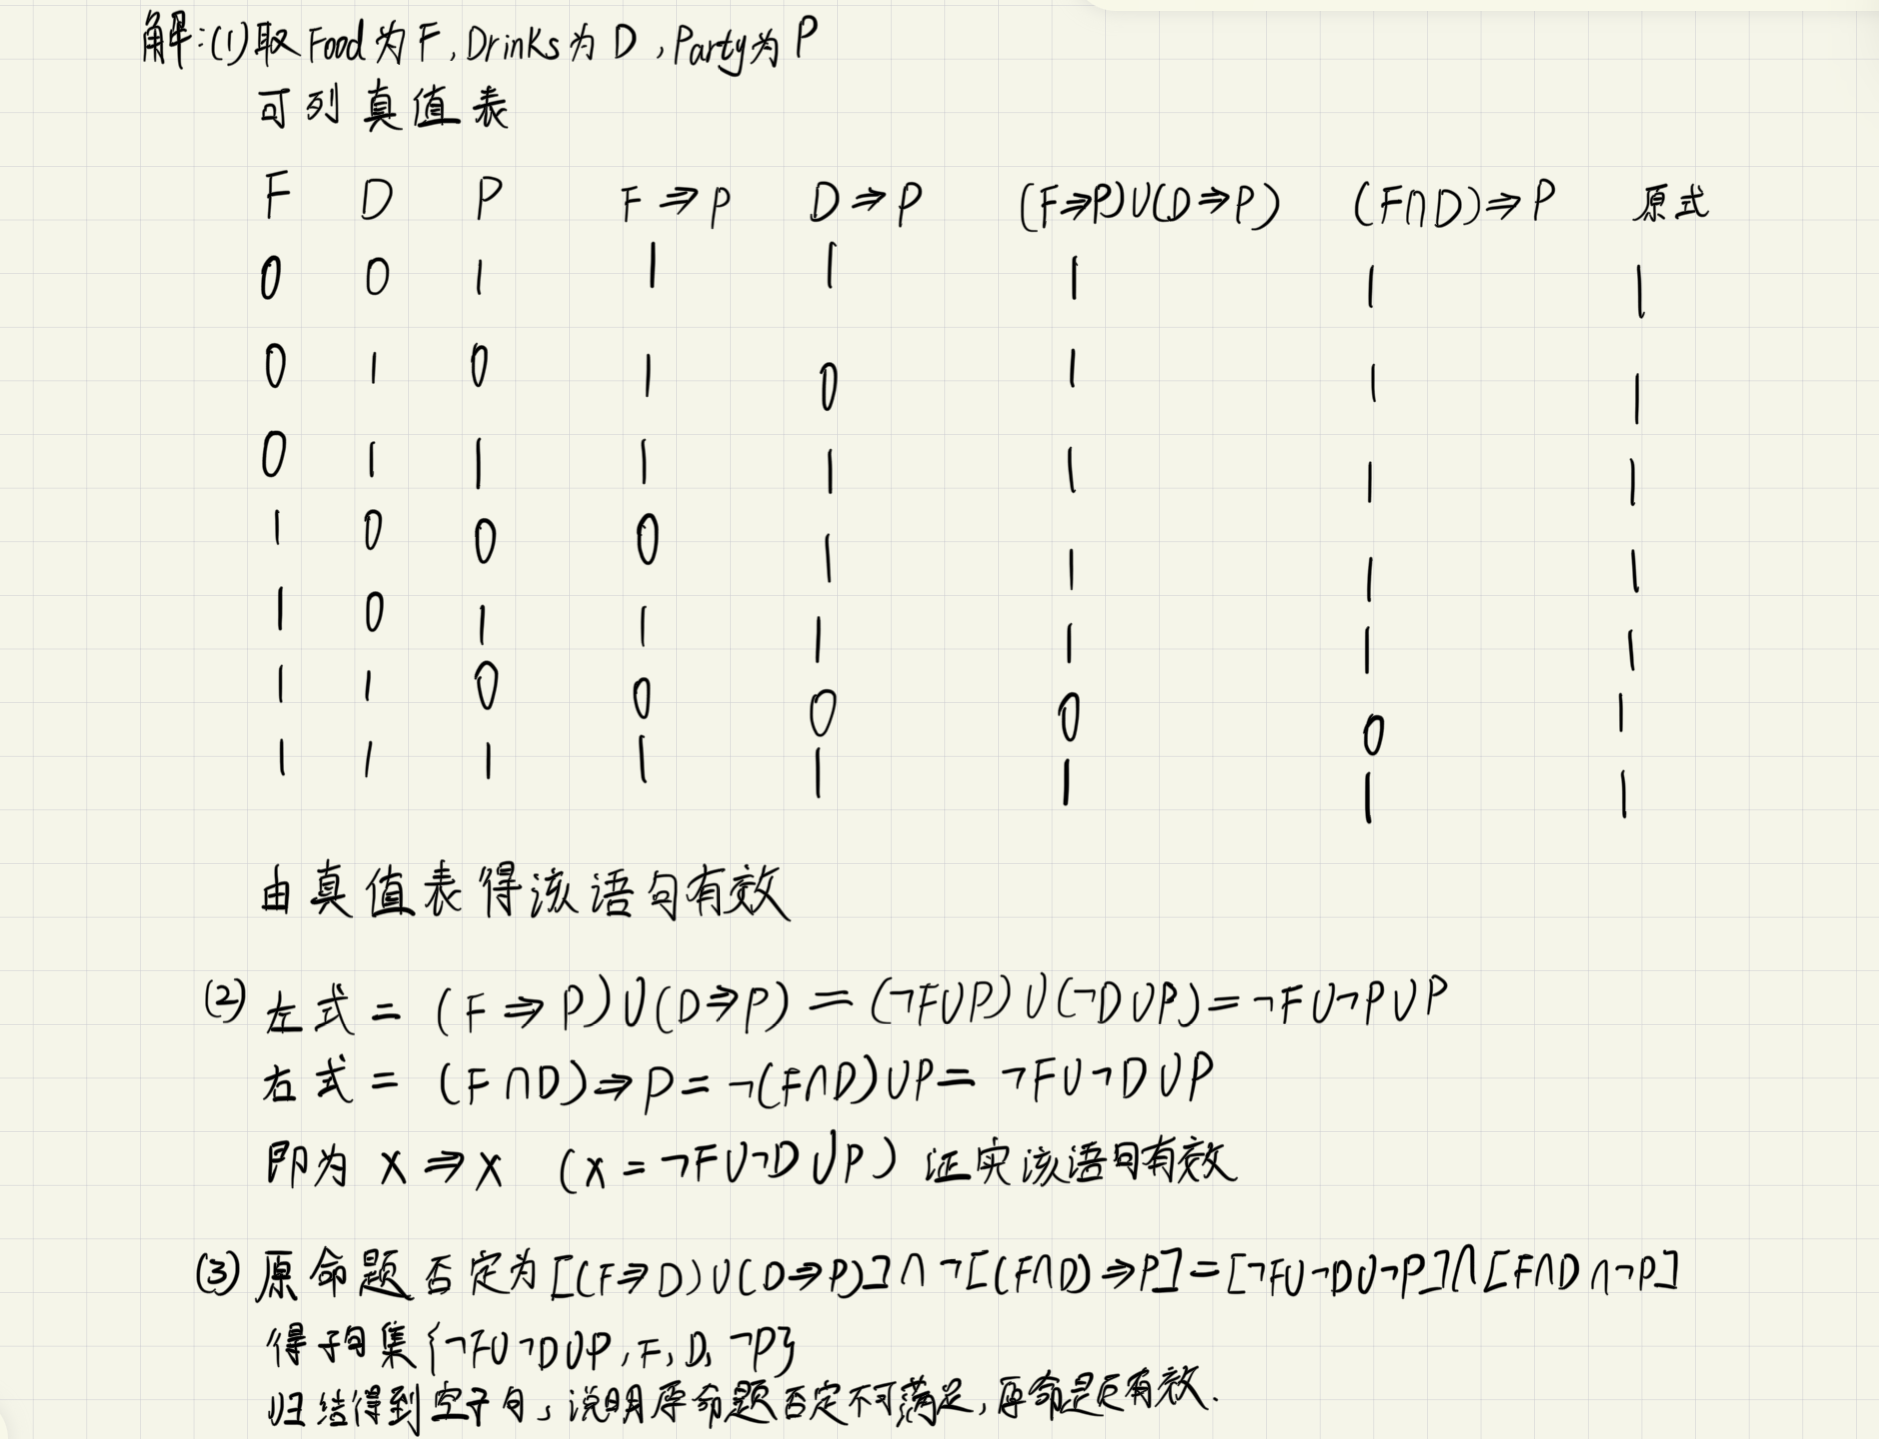 解:(1)取Food为F,Drinks为D,Party为P
可列真值表
F D P F⇒P D⇒P (F⇒P)∪(D⇒P) (F∩D)⇒P 原式
0 0 1 1 1 1 1 1
0 1 0 1 0 1 1 1
0 1 1 1 1 1 1 1
1 0 0 0 1 1 1 1
1 0 1 1 1 1 1 1
1 1 0 0 0 0 0 1
1 1 1 1 1 1 1 1
由真值表得该语句有效
(2) 左式 = (F⇒P)∪(D⇒P) = (¬F∪P)∪(¬D∪P) = ¬F∪¬P∪P
右式 = (F∩D)⇒P = ¬(F∩D)∪P = ¬F∪¬D∪P
即为 X⇒X (X = ¬F∪¬D∪P) 证实该语句有效
(3) 原命题否定为[(F⇒D)∪(D⇒P)]∩¬[(F∩D)⇒P] = [¬F∪¬D∪¬P]∩[F∩D∩¬P]
得子句集{¬F∪¬D∪P, F, D, ¬P}
归结得到空子句,说明原命题否定不可满足,原命题有效.